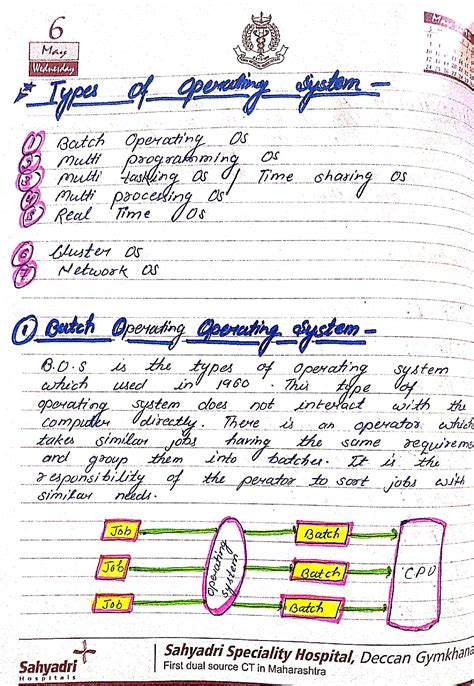 6
May
Wednesday
Types of Operating System -
1 Batch Operating OS
2 Multi programming OS
3 Multi-tasking OS / Time sharing OS
4 Multi processing OS
5 Real Time OS
6 Cluster OS
7 Network OS
1 Batch Operating Operating System -
B.O.S is the types of operating system
which used in 1960. This type of
operating system does not interact with the
computer directly. There is an operator which
takes similar jobs having the same requireme
and group them into batches. It is the
responsibility of the perator to sort jobs with
similar needs.
Job Batch
Job operating system Batch CPU
Job Batch
Sahyadri
Hospitals
Sahyadri Speciality Hospital, Deccan Gymkhana
First dual source CT in Maharashtra